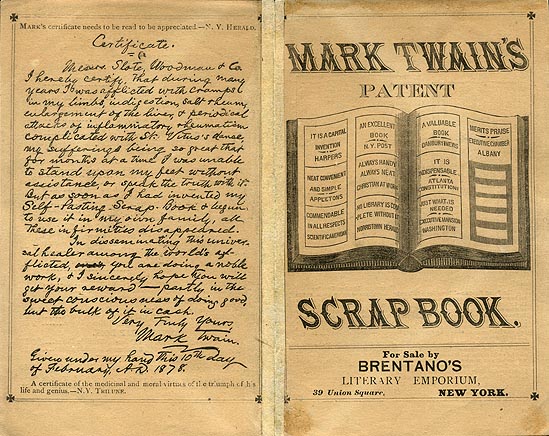 MARK'S certificate needs to be read to be appreciated.—N. Y. HERALD.
Certificate.
Messrs. Slote, Woodman & Co.
I hereby certify, That during many
years I was afflicted with cramps
in my limbs, indigestion, salt rheum,
enlargement of the liver, & periodical
attacks of inflammatory rheumatism
complicated with St. Vitus's dance,
my sufferings being so great that
for months at a time I was unable
to stand upon my feet without
assistance, or speak the truth with it.
But as soon as I had invented my
Self-Pasting Scrap Book & begun
to use it in my own family, all
these infirmities disappeared.
In disseminating this univer-
sal healer among the world's af-
flicted, you are doing a noble
work, & I sincerely hope you will
get your reward — partly in the
sweet consciousness of doing good,
but the bulk of it in cash.
Very Truly Yours,
Mark Twain.
Given under my hand this 10th day
of February, A.D. 1878.
A certificate of the medicinal and moral virtues of the triumph of his
life and genius.—N.Y. TRIBUNE.
MARK TWAIN'S
PATENT
IT IS A CAPITAL
INVENTION
HARPERS
NEAT CONVENIENT
AND SIMPLE
APPLETONS
COMMENDABLE
IN ALL RESPECTS
SCIENTIFIC AMERICAN
AN EXCELLENT
BOOK
N.Y. POST
ALWAYS HANDY
ALWAYS NEAT
CHRISTIAN AT WORK
NO LIBRARY IS COM-
PLETE WITHOUT IT
NORRISTOWN HERALD
A VALUABLE
BOOK
DANBURY NEWS
IT IS
INDISPENSABLE
ATLANTA
CONSTITUTION
JUST WHAT IS
NEEDED
EXECUTIVE MANSION
WASHINGTON
MERITS PRAISE
EXECUTIVE CHAMBER
ALBANY
SCRAP BOOK.
For Sale by
BRENTANO'S
LITERARY EMPORIUM,
39 Union Square, NEW YORK.